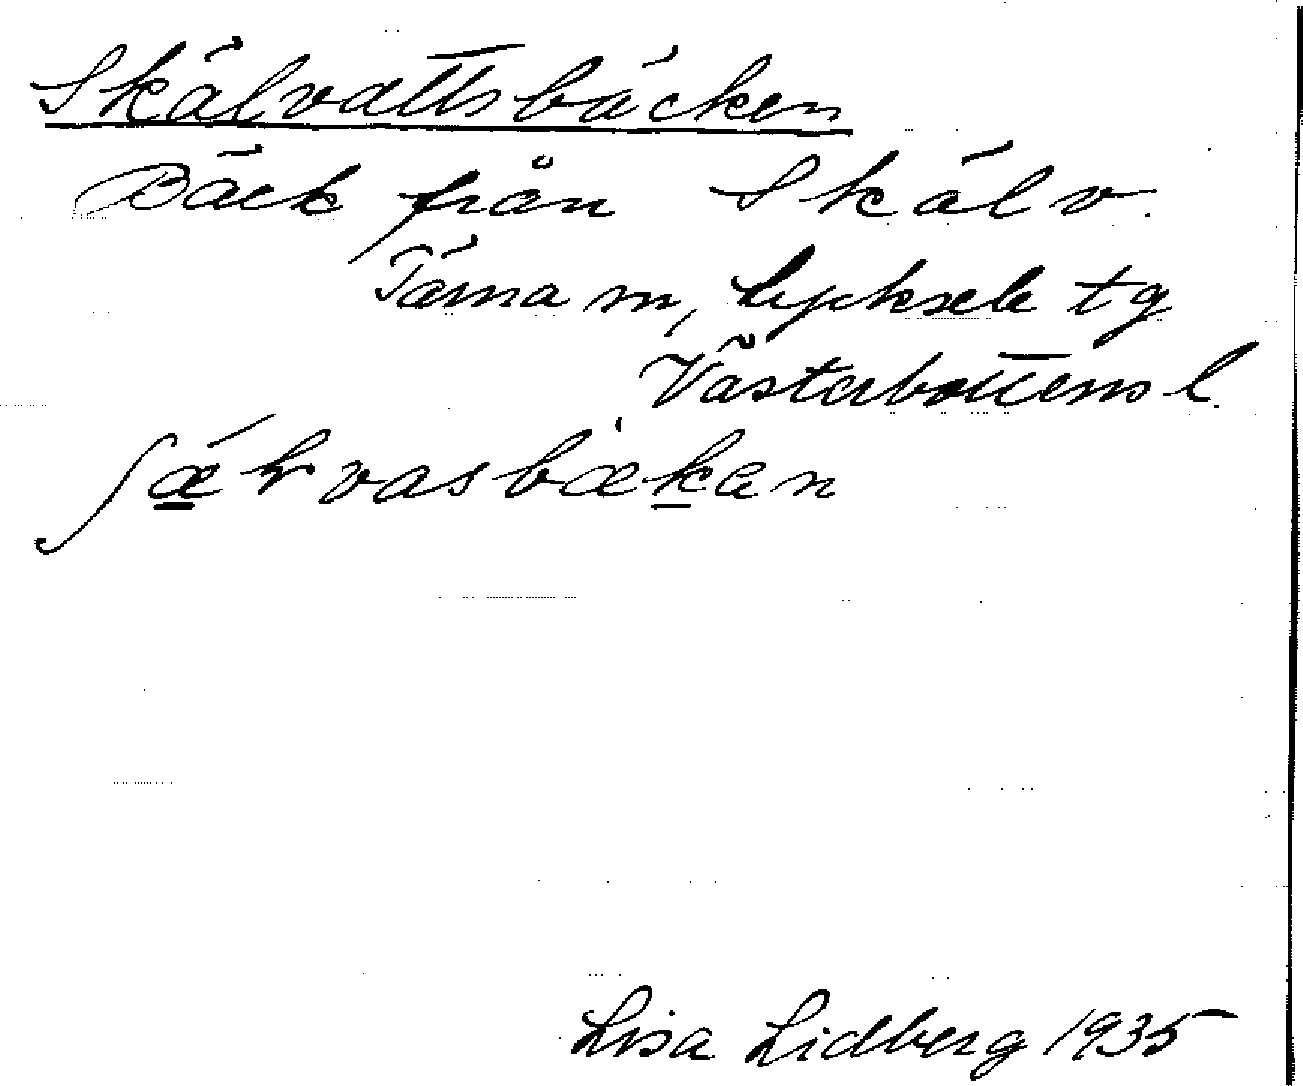 Skälvattsbäcken
Bäck från Skälv.
Tärna sn, Lycksele tg
Västerbottens l.
Lisa Lidberg 1935